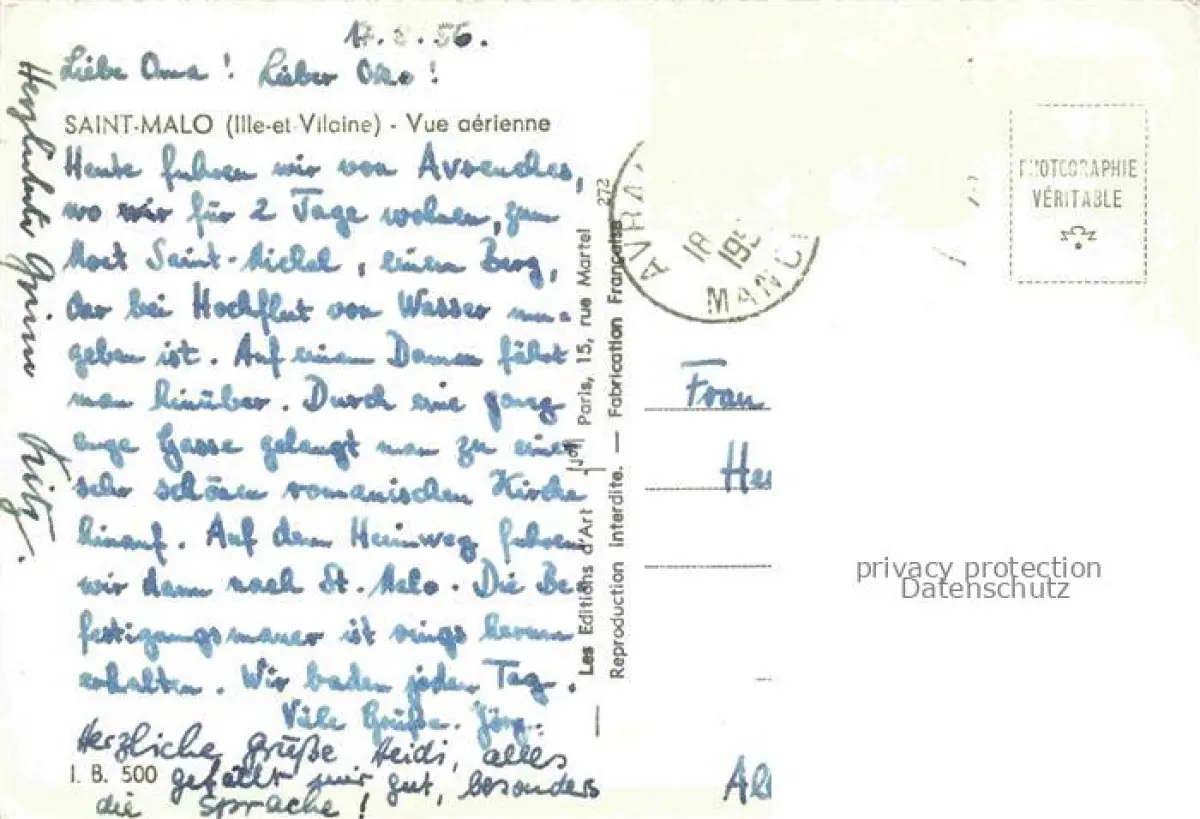 17. 8. 56.
Liebe Oma! Lieber Oko!
SAINT-MALO (Ille-et-Vilaine) - Vue aérienne
Heute fuhren wir von Avrenches,
wo wir für 2 Tage wohnen, zum
Mont Saint-Michel, einem Berg,
der bei Hochflut von Wasser um=
geben ist. Auf einem Damm fährt
man hinüber. Durch eine ganz
enge Gasse gelangt man zu einer
sehr schönen romanischen Kirche
hinauf. Auf dem Heimweg fuhren
wir dann nach St. Malo. Die Be
festigungsmauer ist rings herum
erhalten. Wir baden jeden Tag.
Viele Grüße. Jörg.
Herzliche Grüße Heidi, alles
I. B. 500 gefällt mir gut, besonders
die Sprache!
Herzlichste Grüsse Fritz.
Les Editions d'Art Paris, 15, rue Martel
Reproduction interdite. — Fabrication Française
272
AVRA
18
195
MANC
PHOTOGRAPHIE
VÉRITABLE
Frau
He
Al
privacy protection
Datenschutz